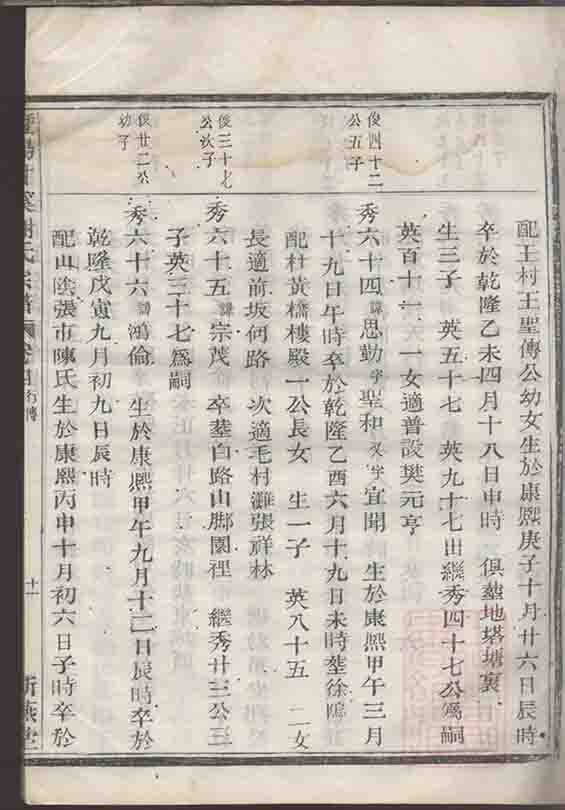 配王村王聖傳公幼女生於康熙庚子十月廿六日辰時
卒於乾隆乙未四月十八日申時 俱塟地塔塘裏
生三子 英五十七 英九十七出繼秀四十七公爲嗣
英百十一 一女適普設樊元亨
俊四十二
公五子
秀六十四 諱 思勤 字 聖和 又字 宜聞 生於康熙甲午三月
十九日午時卒於乾隆乙酉六月十九日未時塟徐隖
配杜黃橋樓殿一公長女 生一子 英八十五 二女
長適前坂何路 次適毛村灘張祥林
俊三十七
公次子
秀六十五 諱 宗茂 卒塟白路山脚園裡 繼秀廿三公三
子英三十七爲嗣
俊廿二公
幼子
秀六十六 諱 鴻倫 生於康熙甲午九月十二日辰時卒於
乾隆戊寅九月初九日辰時
配山陰張市陳氏生於康熙丙申十月初六日子時卒於
氏宗譜 卷四 行傳
十一